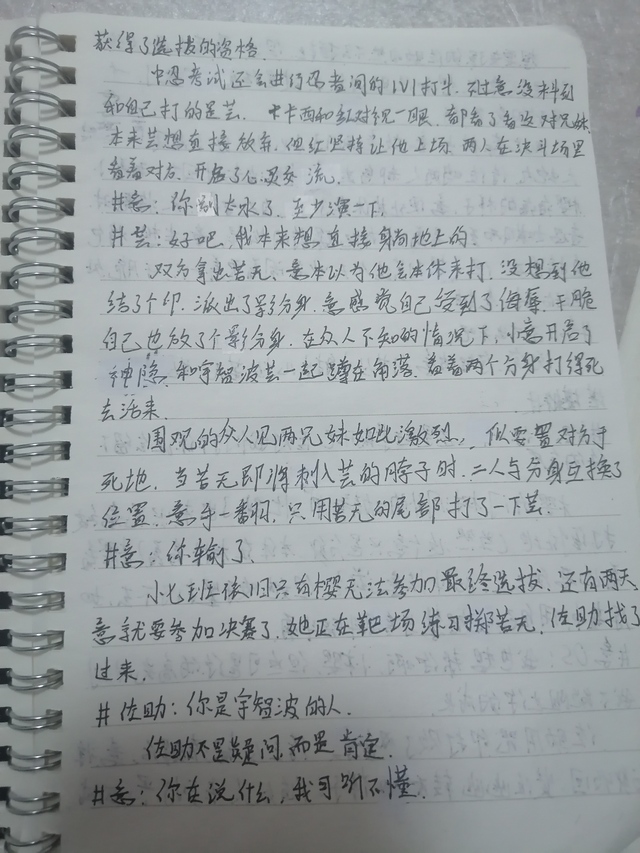 获得了选拔的资格.
中忍考试还会进行忍者间的1V1打斗.不过意没料到
和自己打的是芸. 卡卡西和红对视一眼.都看了看这对兄妹.
本来芸想直接放弃.但红坚持让他上场.两人在决斗场里
看着对方.开启了心灵交流.
#意:你别太水了.至少演一下.
#芸:好吧.我本来想直接躺地上的.
双方拿出苦无.意本以为他会本体来打.没想到他
结了个印.派出了影分身.意感觉自己受到了侮辱.干脆
自己也放了个影分身.在众人不知的情况下,小意开启了
神隐.和宇智波芸一起蹲在角落.看着两个分身打得死
去活来.
围观的众人见两兄妹如此激烈,似要置对方于
死地.当苦无即将刺入芸的脖子时.二人与分身互换了
位置.意手一翻,只用苦无的尾部打了一下芸.
#意:你输了.
小七班依旧只有樱无法参加最终选拔.还有两天,
意就要参加决赛了.她正在靶场练习掷苦无.佐助找了
过来.
#佐助:你是宇智波的人.
佐助不是疑问.而是肯定.
#意:你在说什么,我可听不懂.